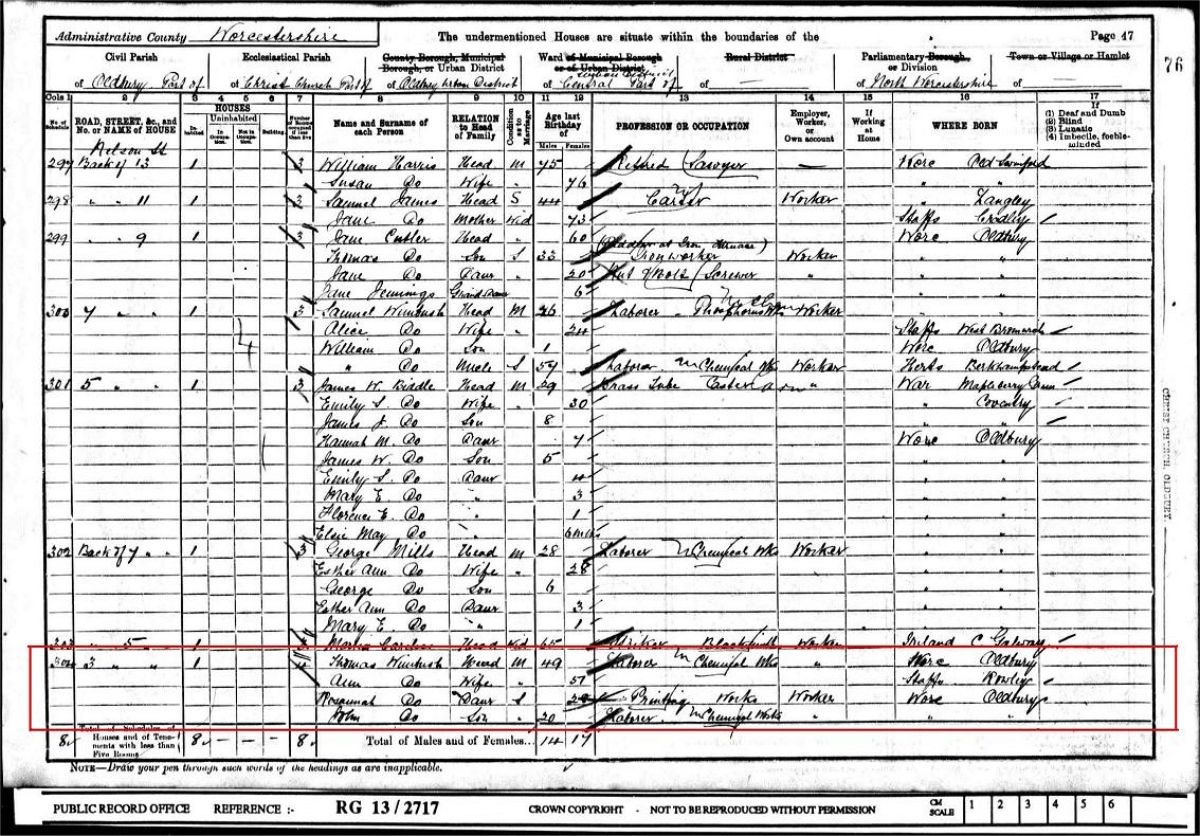 Administrative County Worcestershire
The undermentioned Houses are situate within the boundaries of the
Page 47
76
Civil Parish
of Oldbury Part of
Ecclesiastical Parish
of Christ Church Part of
County Borough, Municipal Borough, or Urban District
of Oldbury Urban District
Ward of Municipal Borough or of Urban District
Urban District
of Central Part of
Rural District
of —
Parliamentary Borough, or Division
of North Worcestershire
Town or Village or Hamlet
of —
Cols 1 2 3 4 5 6 7 8 9 10 11 12 13 14 15 16 17
No. of Schedule
ROAD, STREET, &c., and No. or NAME of HOUSE
HOUSES
Inhabited
Uninhabited
In Occupation
Not in Occupation
Building
Name and Surname of each Person
RELATION to Head of Family
Condition as to Marriage
Age last Birthday of
Males Females
PROFESSION OR OCCUPATION
Employer, Worker, or Own account
If Working at Home
WHERE BORN
If
(1) Deaf and Dumb
(2) Blind
(3) Lunatic
(4) Imbecile, feeble-minded
Nelson St
297 Back of 13 1 3 William Harris Head M 75 Retired Sawyer — Worc Old Swinford
Susan Do Wife " 76 " "
298 " " 11 1 3 Samuel James Head S 44 Carter Worker " Langley
Jane Do Mother Wid 73 Staffs Cradley
299 " " 9 1 3 Jane Cutler Head " 60 Worc Oldbury
Thomas Do Son S 33 (Puddler at Iron Furnace) Ironworker Worker " "
Jane Do Daur " 20 Nut & Bolt Screwer " " "
Jane Jennings Grand Daur 6 " "
300 7 " " 1 3 Samuel Wimbush Head M 26 Laborer Phosphorus Wks Worker " "
Alice Do Wife " 24 Staffs West Bromwich
William Do Son 1 Worc Oldbury
" Do Uncle S 59 Laborer in Chemical Wks Worker Herts Berkhampstead
301 5 " " 1 3 James W. Biddle Head M 29 Brass Tube Caster " War
Emily S. Do Wife " 30 " Coventry
James J. Do Son 8 " "
Hannah M. Do Daur 7 Worc Oldbury
James W. Do Son 5 " "
Emily S. Do Daur 4 " "
Mary E. Do " 3 " "
Florence E. Do " 1 " "
Elsie May Do " 6 mths " "
302 Back of 7 " " 1 3 George Mills Head M 28 Laborer in Chemical Wks Worker " "
Esther Ann Do Wife " 28 " "
George Do Son 6 " "
Esther Ann Do Daur 3 " "
Mary E. Do " 1 " "
303 " 5 " 1 Head Wid 65 Striker Blacksmith Worker Ireland C Galway
304 3 " " 1 Thomas Wimbush Head M 49 Laborer in Chemical Wks " Worc Oldbury
Ann Do Wife " 57 Staffs Rowley
Rosannah Do Daur S Printing Works Worker Worc Oldbury
John Do Son " 20 Laborer in Chemical Works " " "
8 Total of Schedules of Houses and of Tenements with less than Five Rooms 8 — — — 8 Total of Males and of Females... 14 17
NOTE—Draw your pen through such words of the headings as are inapplicable.
CHRIST CHURCH, OLDBURY.
PUBLIC RECORD OFFICE REFERENCE :- RG 13/2717 CROWN COPYRIGHT - NOT TO BE REPRODUCED WITHOUT PERMISSION CM SCALE 1 2 3 4 5 6